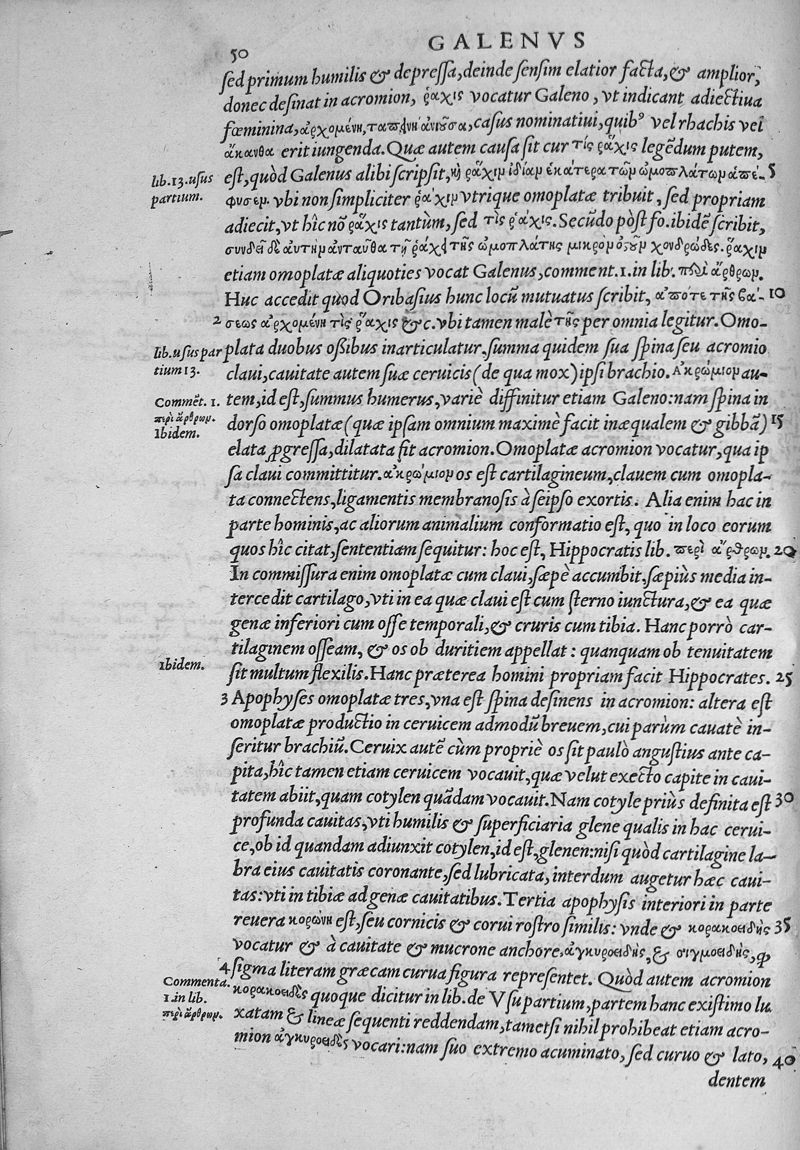 50
GALENVS
sed primum humilis & depressa, deinde sensim elatior facta, & amplior,
donec desinat in acromion, ῥάχις vocatur Galeno, vt indicant adiectiua
fœminina, ἀρχομένη, ταπεινὴ ἀνιοῦσα, casus nominatiui, quibꝰ vel rhachis vel
ἄκανθα erit iungenda. Quæ autem causa sit cur τὶς ῥάχις legēdum putem,
lib. 13. usus
partium.
est, quòd Galenus alibi scripsit, καὶ ῥάχιν ἰδίαν ἑκατέρα τῶν ὠμοπλατῶν ἀπέ- 5
φυσεν. vbi non simpliciter ῥάχιν vtrique omoplatæ tribuit, sed propriam
adiecit, vt hîc nō ῥάχις tantùm, sed τὶς ῥάχις. Secūdo pòst fo. ibidē scribit,
μικρὸν χονδρῶδες. ῥάχιν
etiam omoplatæ aliquoties vocat Galenus, comment. 1. in lib. περὶ ἄρθρων.
Huc accedit quod Oribasius hunc locū mutuatus scribit, ἀπό τε τῆς βά- 10
2 σεως ἀρχομένη τὶς ῥάχις &c. vbi tamen malè τῆς per omnia legitur. Omo-
lib. usus par
tium 13.
plata duobus oßibus inarticulatur. summa quidem sua spina seu acromio
claui, cauitate autem suæ ceruicis (de qua mox) ipsi brachio. Ἀκρώμιον au-
Commēt. 1.
περὶ ἄρθρων.
Ibidem.
tem, id est, summus humerus, variè diffinitur etiam Galeno: nam spina in
dorso omoplatæ (quæ ipsam omnium maximè facit inæqualem & gibbā) 15
elata ꝓgressa, dilatata fit acromion. Omoplatæ acromion vocatur, qua ip
sa claui committitur. ἀκρώμιον os est cartilagineum, clauem cum omopla-
ta connectens, ligamentis membranosis à seipso exortis. Alia enim hac in
parte hominis, ac aliorum animalium conformatio est, quo in loco eorum
quos hîc citat, sententiam sequitur: hoc est, Hippocratis lib. περὶ ἄρθρων. 20
In commissura enim omoplatæ cum claui, sæpè accumbit, sæpiùs media in-
tercedit cartilago, vti in ea quæ claui est cum sterno iunctura, & ea quæ
genæ inferiori cum osse temporali, & cruris cum tibia. Hanc porrò car-
tilaginem osseam, & os ob duritiem appellat: quanquam ob tenuitatem
Ibidem.
sit multum flexilis. Hanc præterea homini propriam facit Hippocrates. 25
3 Apophyses omoplatæ tres, vna est spina desinens in acromion: altera est
omoplatæ productio in ceruicem admodū breuem, cui parùm cauatè in-
seritur brachiū. Ceruix autē cùm propriè os sit paulò angustius ante ca-
pita, hîc tamen etiam ceruicem vocauit, quæ velut execto capite in caui-
tatem abiit, quam cotylen quādam vocauit. Nam cotyle priùs definita est 30
profunda cauitas, vti humilis & superficiaria glene qualis in hac cerui-
ce, ob id quandam adiunxit cotylen, id est, glenen: nisi quòd cartilagine la-
bra eius cauitatis coronante, sed lubricata, interdum augetur hæc caui-
tas: vti in tibiæ ad genæ cauitatibus. Tertia apophysis interiori in parte
reuera κορώνη est, seu cornicis & corui rostro similis: vnde & κορακοειδὴς 35
vocatur & à cauitate & mucrone anchore, ἀγκυροειδὴς, & σιγμοειδὴς, ꝙ
4 sigma literam græcam curua figura representet. Quòd autem acromion
Commenta.
1. in lib.
περὶ ἄρθρων.
κορακοειδὲς quoque dicitur in lib. de Vsu partium, partem hanc existimo lu
xatam & lineæ sequenti reddendam, tametsi nihil prohibeat etiam acro-
mion ἀγκυροειδὲς vocari: nam suo extremo acuminato, sed curuo & lato, 40
dentem